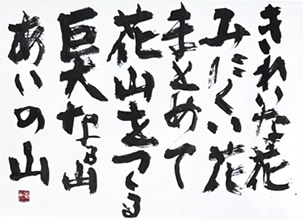 きれいな花
みにくい花
まとめて
花山をつくる
巨大なる山
あいの山